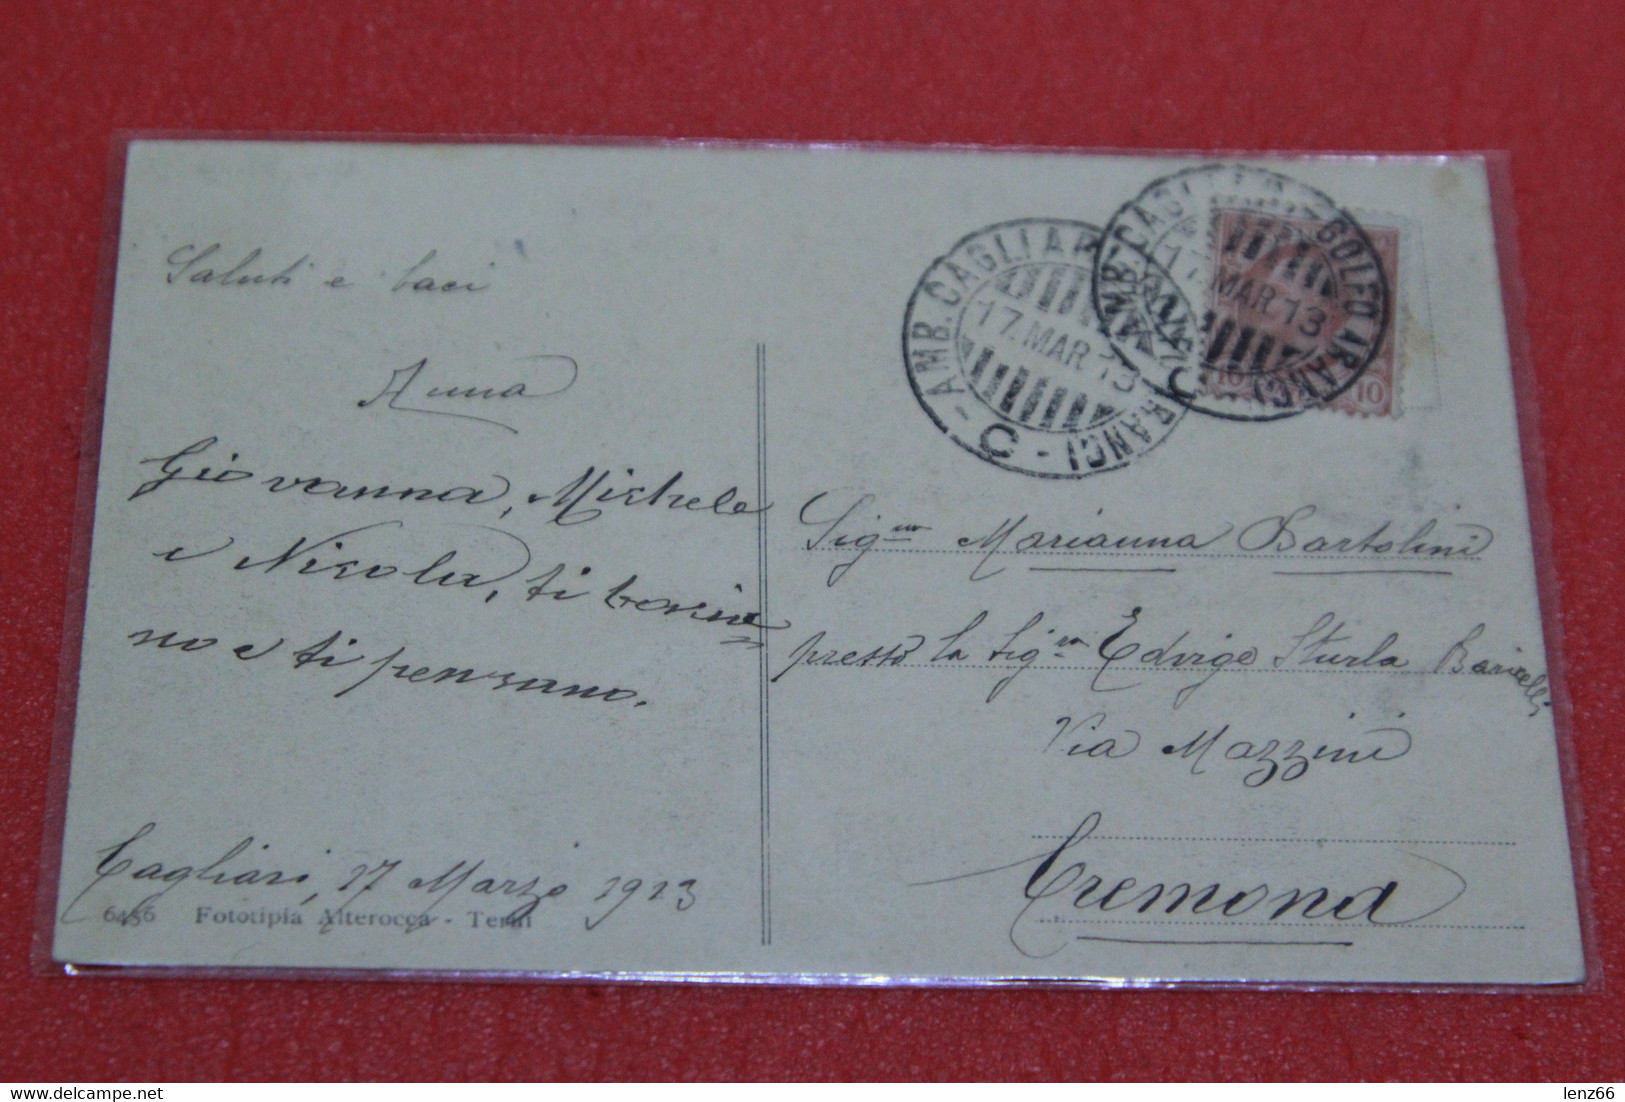 Saluti e baci
Anna
Giovanna, Michele
e Nicola, ti
no e ti pensano.
Cagliari, 17 Marzo 1913
6456 Fototipia Alterocca - Terni
AMB. CAGLIARI RANCI - C -
17. MAR 13
AMB. CAGLIARI - GOLFO ARANCI C
17. MAR. 13
10 10
Sig.na Marianna Bartolini
presso la Sig.ra Edvige Sturla Baricelli
Via Mazzini
Cremona
delcampe.net
lenz66